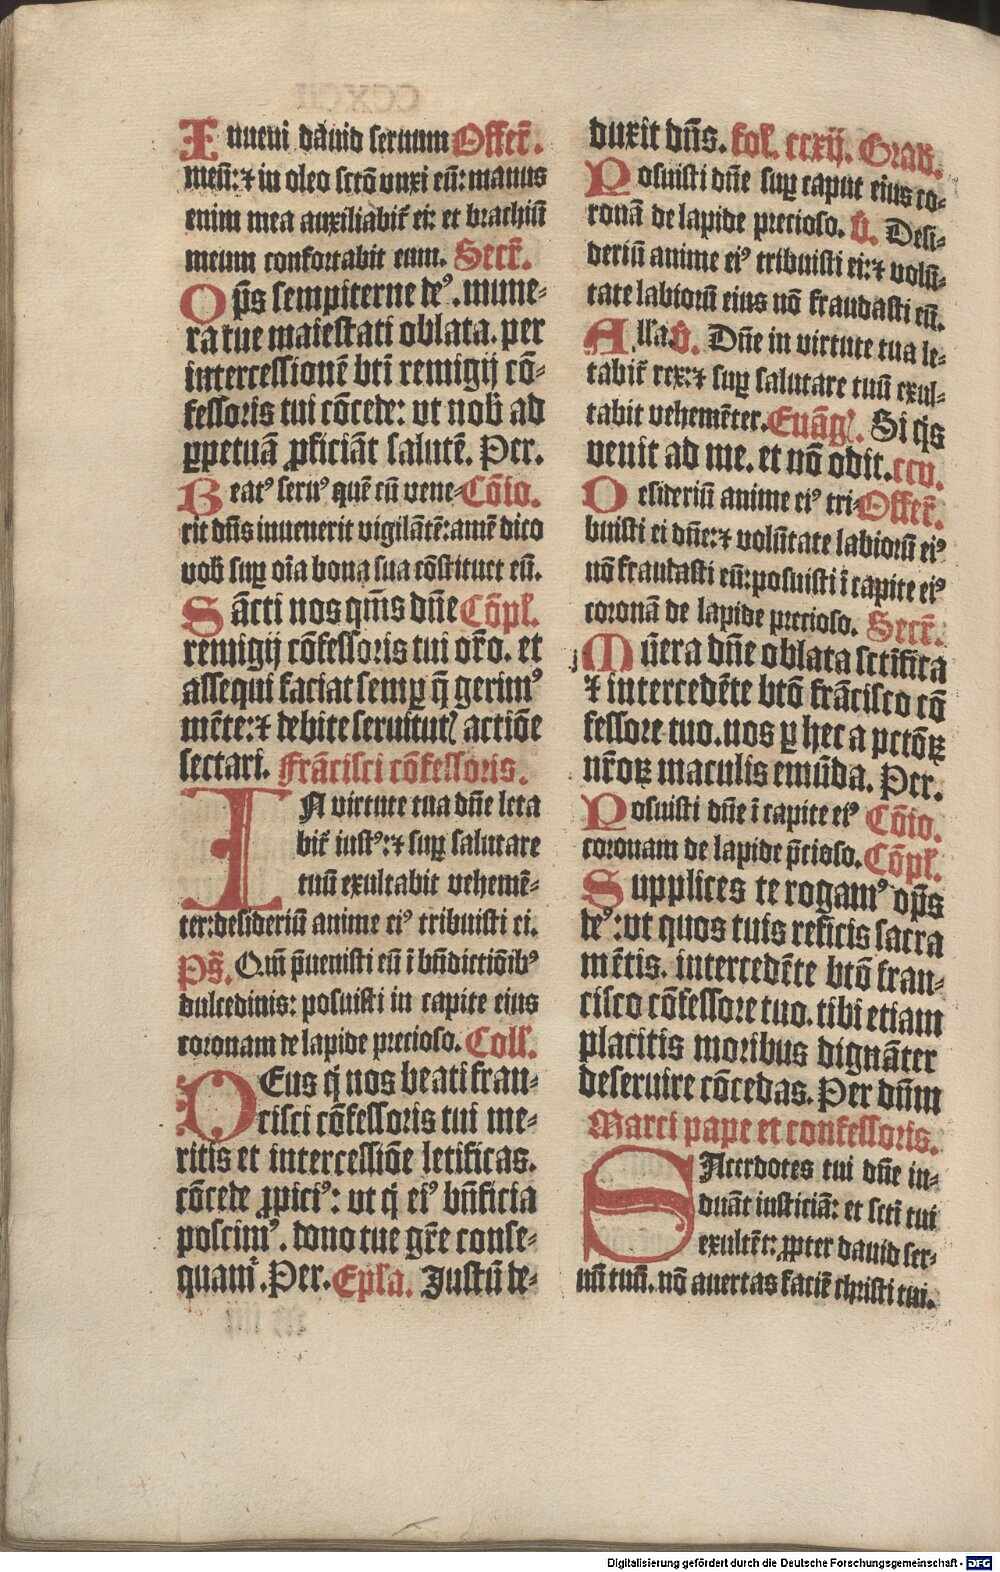 Inueni dauid seruum Offer̄.
meū: ⁊ in oleo sctō vnxi eū: manus
enim mea auxiliabit̄ ei: et brachiū
meum confortabit eum. Secr̄.
Op̄s sempiterne deꝰ. mune-
ra tue maiestati oblata. per
intercessionē bti remigij cō-
fessoris tui cōcede: vt nob̄ ad
ꝑpetuā ꝓficiāt salutē. Per.
Beatꝰ seruꝰ quē cū vene- Cōio.
rit dn̄s inuenerit vigilātē: amē dico
vob̄ suꝑ oīa bona sua cōstituet eū.
Sācti nos qm̄s dn̄e Cōpl̄.
remigij cōfessoris tui or̄o. et
assequi faciat semꝑ q̄ gerimꝰ
mēte: ⁊ debite seruitutꝭ actiōe
sectari. Frācisci cōfessoris.
IN virtute tua dn̄e leta
bit̄ iustꝰ: ⁊ suꝑ salutare
tuū exultabit vehemē-
ter: desideriū anime eiꝰ tribuisti ei.
Ps̄. Qm̄ p̄uenisti eū ī bn̄dictiōibꝰ
dulcedinis: posuisti in capite eius
coronam de lapide precioso. Coll̄.
DEus q̄ nos beati fran-
cisci cōfessoris tui me-
ritis et intercessiōe letificas.
cōcede ꝓpiciꝰ: vt q̄ eiꝰ bn̄ficia
poscimꝰ. dono tue gr̄e conse-
quamᷣ. Per. Epla. Justū de-
duxit dn̄s. fol̄. ccxij. Grad̄.
Posuisti dn̄e suꝑ caput eius co-
ronā de lapide precioso. v̄. Desi-
deriū anime eiꝰ tribuisti ei: ⁊ volū-
tate labiorū eius nō fraudasti eū.
Alla. v̄. Dn̄e in virtute tua le-
tabit̄ rex: ⁊ suꝑ salutare tuū exul-
tabit vehemēter. Euāgꝭ. Si q̄s
venit ad me. et nō odit. ccv.
Desideriū anime eiꝰ tri- Offer̄.
buisti ei dn̄e: ⁊ volūtate labiorū eiꝰ
nō fraudasti eū: posuisti ī capite eiꝰ
coronā de lapide precioso. Secr̄.
Mūera dn̄e oblata sctīfica
⁊ intercedēte btō frācisco cō
fessore tuo. nos ꝑ hec a pctōꝝ
nr̄oꝝ maculis emūda. Per.
Posuisti dn̄e ī capite eiꝰ Cōio.
coronam de lapide p̄cioso. Cōpl̄.
Supplices te rogamꝰ op̄s
deꝰ: vt quos tuis reficis sacra
mētis. intercedēte btō fran-
cisco cōfessore tuo. tibi etiam
placitis moribus dignāter
deseruire cōcedas. Per dn̄m
Marci pape et confessoris.
SAcerdotes tui dn̄e in-
duāt iusticiā: et sctī tui
exultēt: ꝓpter dauid ser-
uū tuū. nō auertas faciē christi tui.
Digitalisierung gefördert durch die Deutsche Forschungsgemeinschaft - DFG